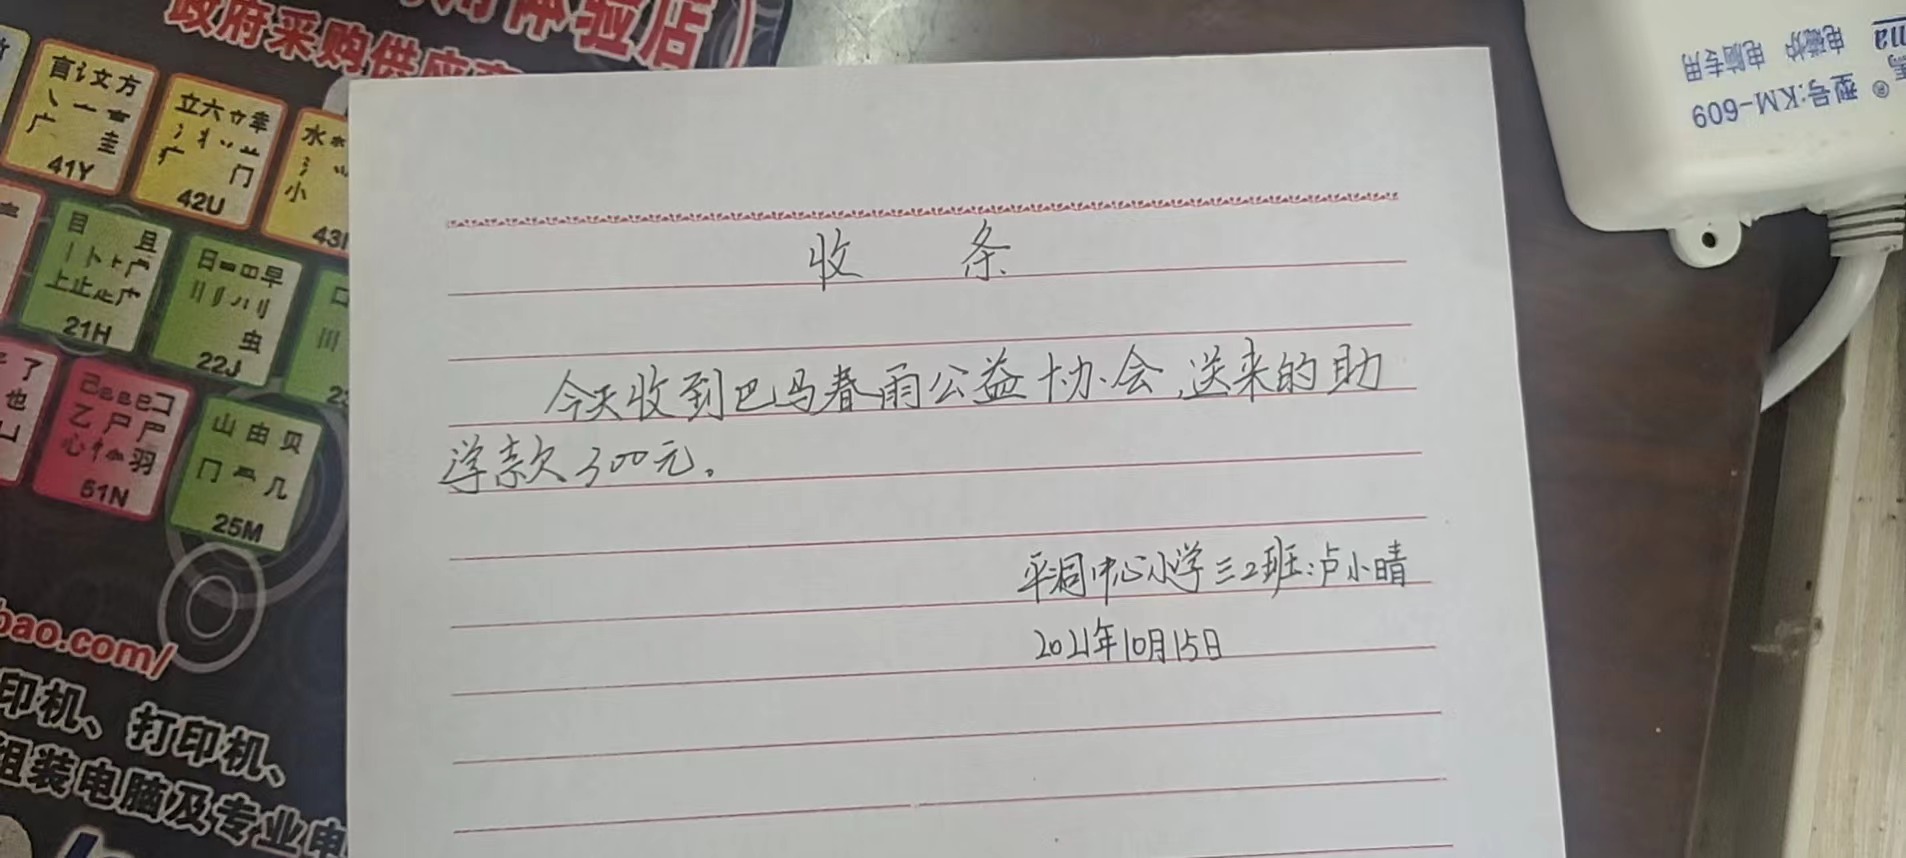 体验店)
政府采购供应商
言讠文方
41Y
立六
42U
水
小
43I
目 且
上止
21H
日 早
虫
22J
口
了
也
乙尸
心 羽
51N
山由贝
几
25M
bao.com/
印机、打印机、
组装电脑及专业电
收 条
今天收到巴马春雨公益协会,送来的助
学款300元。
平洞中心小学三2班:卢小晴
2021年10月15日
电磁炉 电脑专用
® 型号:KM-609